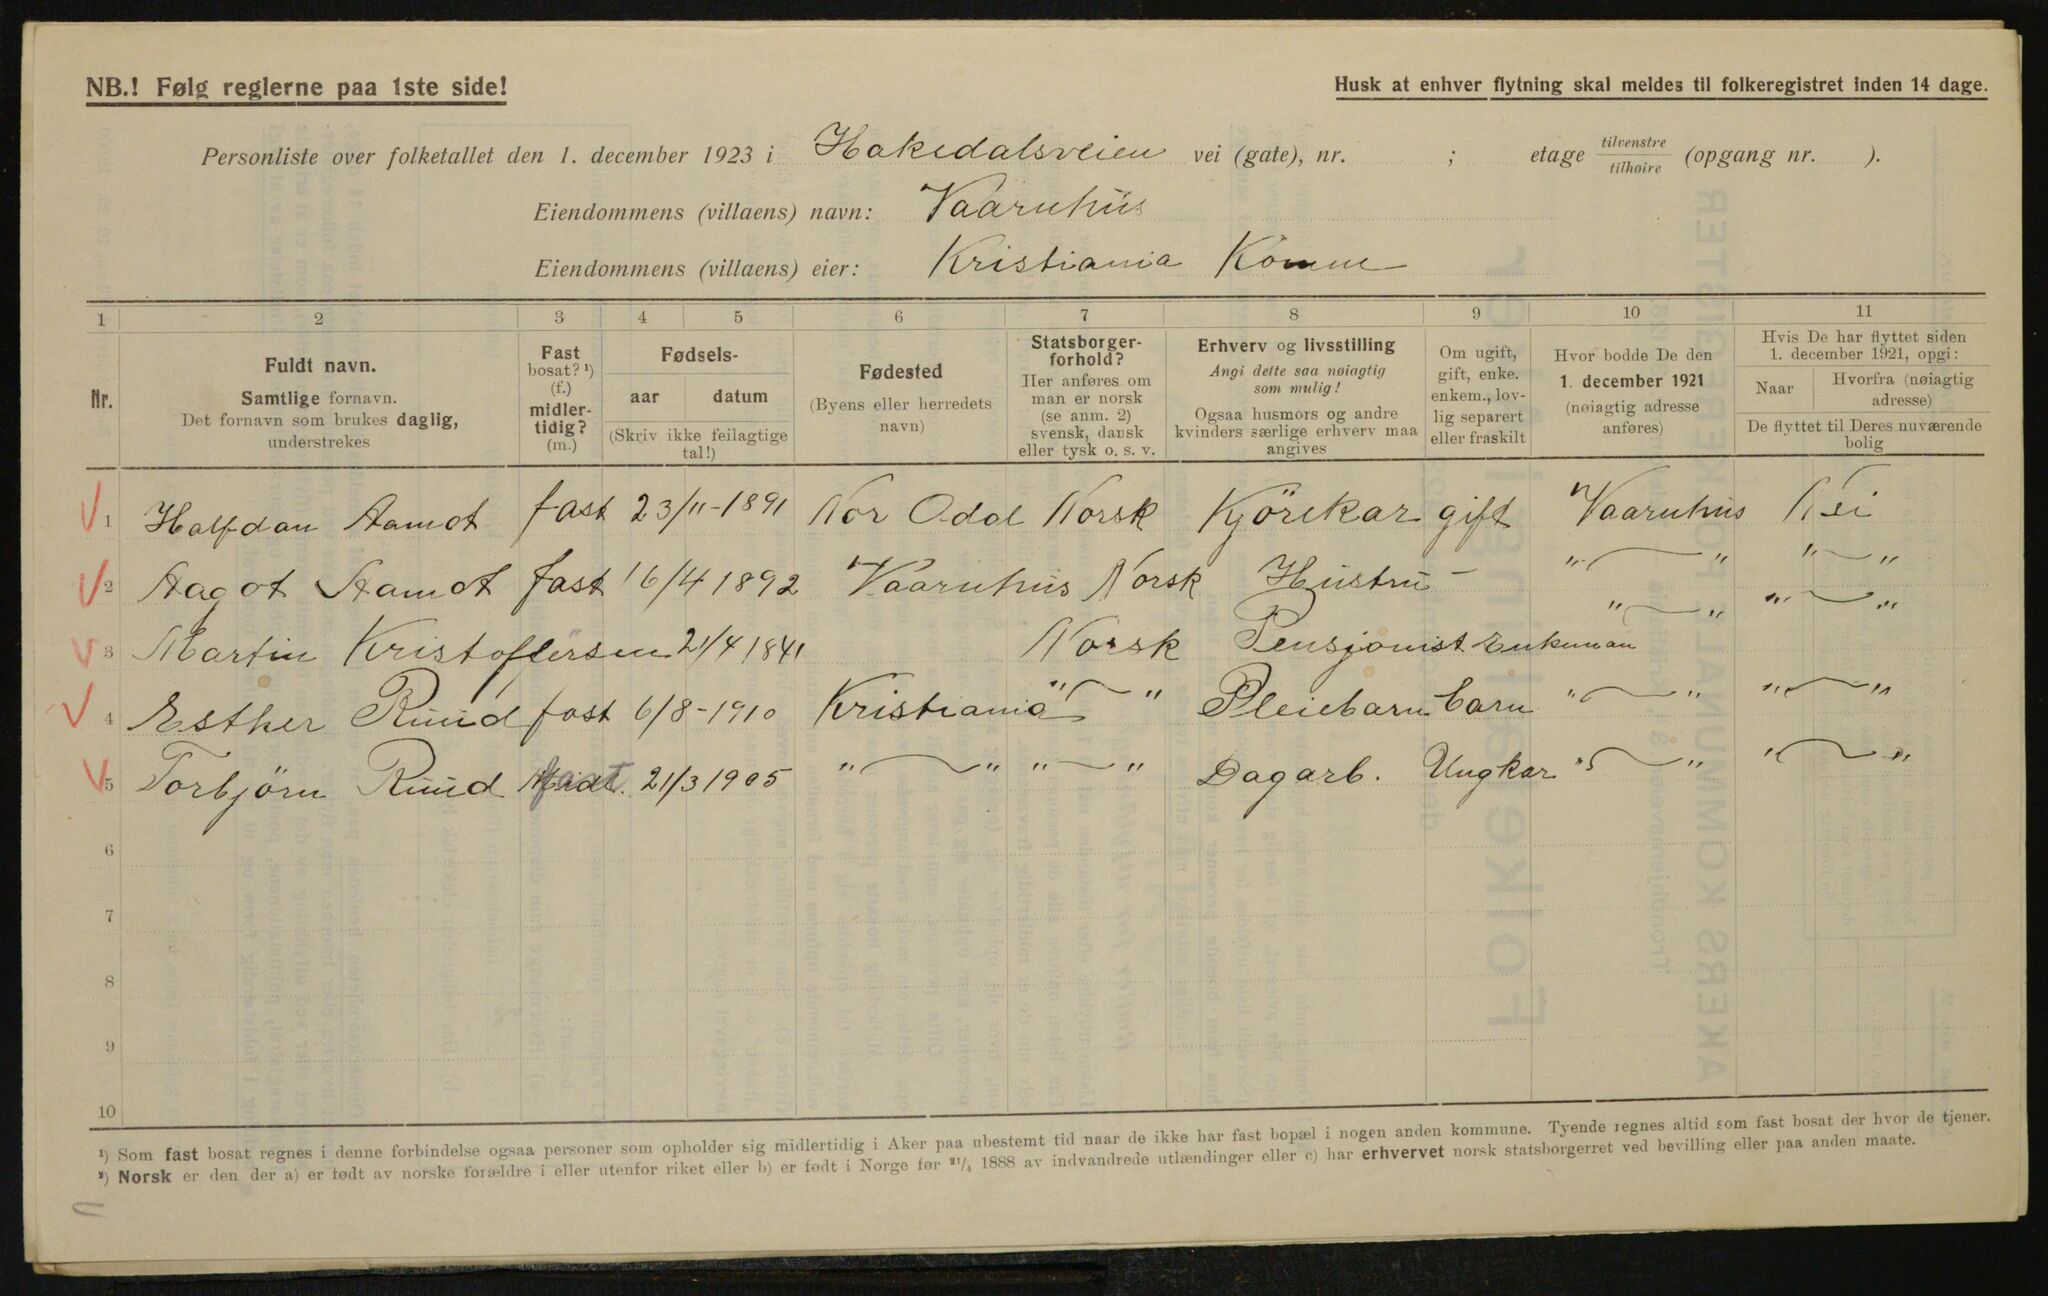 NB.! Følg reglerne paa 1ste side!
Husk at enhver flytning skal meldes til folkeregistret inden 14 dage.
Personliste over folketallet den 1. december 1923 i Hakedalsveien vei (gate), nr. ; etage tilvenstre tilhøire (opgang nr. ).
Eiendommens (villaens) navn: Vaaruhus
Eiendommens (villaens) eier: Kristiania Komm
1 2 3 4 5 6 7 8 9 10 11
Nr.
Fuldt navn.
Samtlige fornavn.
Det fornavn som brukes daglig,
understrekes
Fast
bosat? ¹)
(f.)
midler-
tidig?
(m.)
Fødsels-
aar datum
(Skriv ikke feilagtige
tal!)
Fødested
(Byens eller herredets
navn)
Statsborger-
forhold?
Her anføres om
man er norsk
(se anm. 2)
svensk, dansk
eller tysk o. s. v.
Erhverv og livsstilling
Angi dette saa nøiagtig
som mulig!
Ogsaa husmors og andre
kvinders særlige erhverv maa
angives
Om ugift,
gift, enke.
enkem., lov-
lig separert
eller fraskilt
Hvor bodde De den
1. december 1921
(nøiagtig adresse
anføres)
Hvis De har flyttet siden
1. december 1921, opgi:
Naar Hvorfra (nøiagtig
adresse)
De flyttet til Deres nuværende
bolig
1 Halfdan Aamot fast 23/11-1891 Nor Odal Norsk Kjörekar gift Vaaruhus Nei
2 Aagot Aamot fast 16/4 1892 Vaaruhus Norsk Hustru – " — " " — "
3 Martin Kristoffersen 21/4 1841 Norsk Pensjonist Enkeman " — " " — "
4 Esther Ruud fast 6/8-1910 Kristiania " — " Pleiebarn barn " — " " — "
5 Torbjörn Ruud Midt. fast 21/3 1905 " — " " — " Dagarb. Ungkar " — " " — "
6
7
8
9
10
¹) Som fast bosat regnes i denne forbindelse ogsaa personer som opholder sig midlertidig i Aker paa ubestemt tid naar de ikke har fast bopæl i nogen anden kommune. Tyende regnes altid som fast bosat der hvor de tjener.
²) Norsk er den der a) er født av norske forældre i eller utenfor riket eller b) er født i Norge før ²¹/₄ 1888 av indvandrede utlændinger eller c) har erhvervet norsk statsborgerret ved bevilling eller paa anden maate.